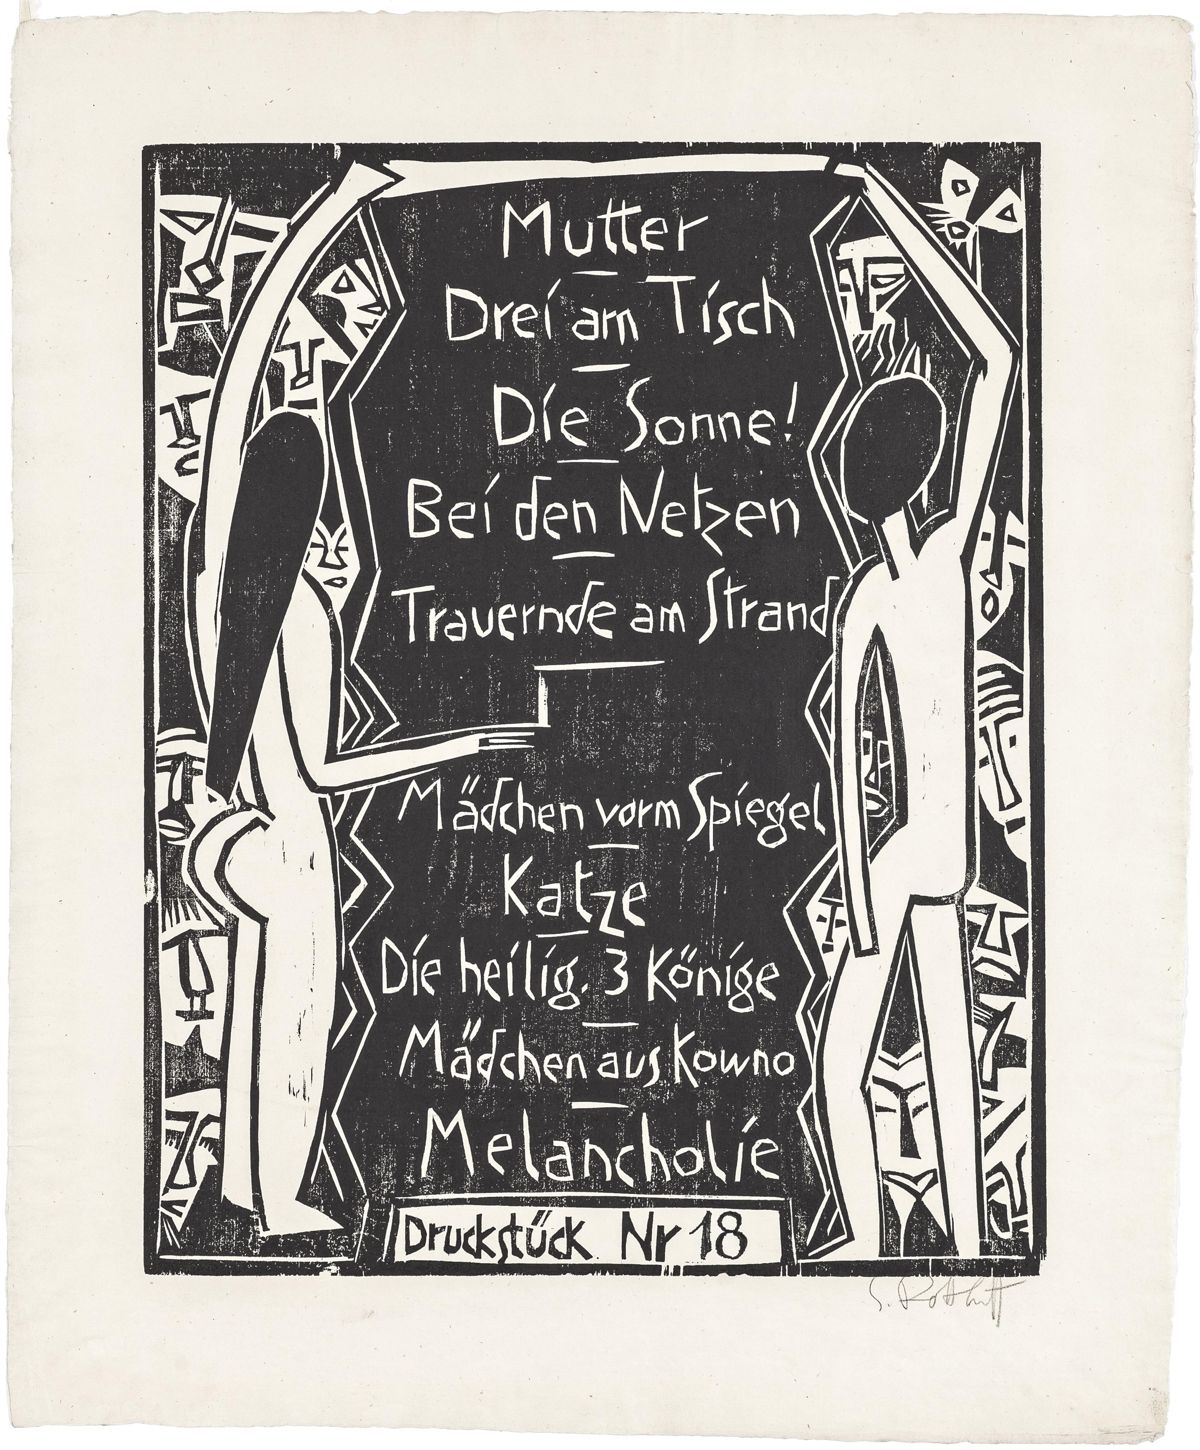 Mutter
Drei am Tisch
Die Sonne!
Bei den Netzen
Trauernde am Strand
Mädchen vorm Spiegel
Katze
Die heilig. 3 Könige
Mädchen aus Kowno
Melancholie
Druckstück Nr 18
S. Rottluff